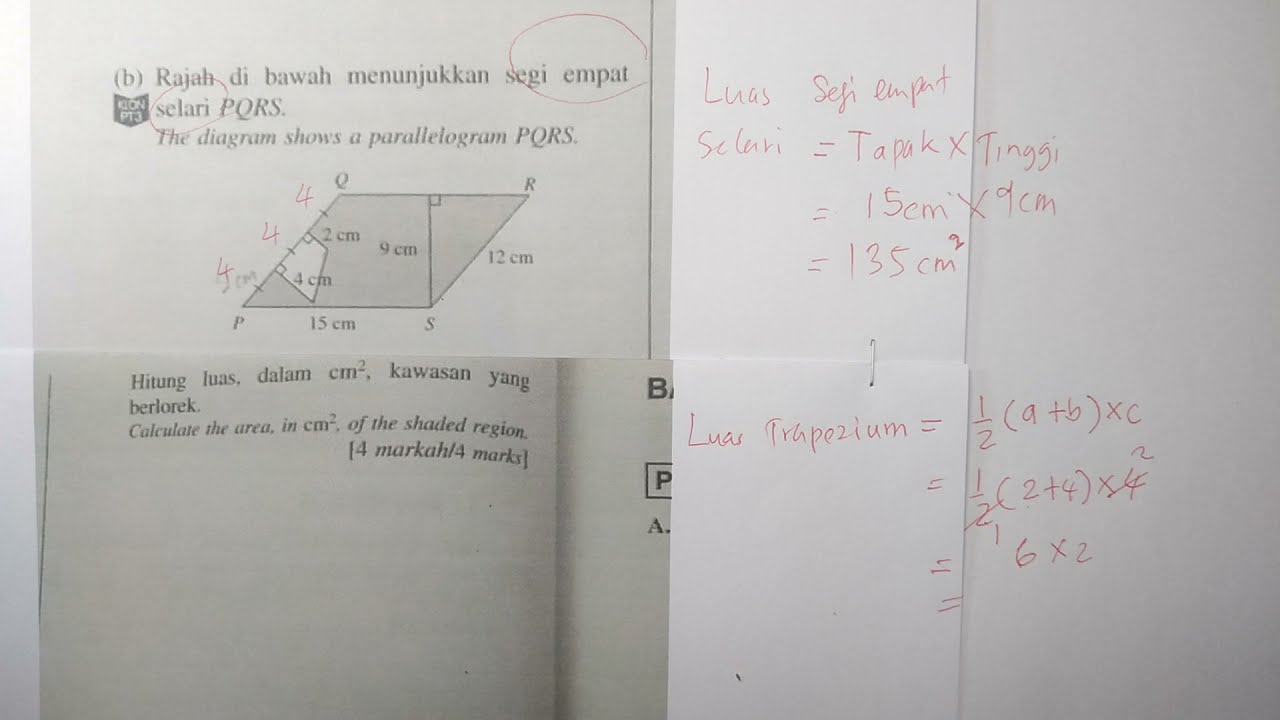 (b) Rajah di bawah menunjukkan segi empat
KLON PT3
selari PQRS.
The diagram shows a parallelogram PQRS.
Q
R
4
4
2 cm
9 cm
12 cm
4 cm
4 cm
P
15 cm
S
Hitung luas, dalam cm², kawasan yang
berlorek.
Calculate the area, in cm², of the shaded region.
[4 markah/4 marks]
BA
P
A.
Luas Segi empat
Selari = Tapak × Tinggi
= 15cm × 9cm
= 135 cm²
Luas Trapezium = 1/2 (a+b) × c
= 1/2 (2+4) × 4 2
1
= 6 × 2
=